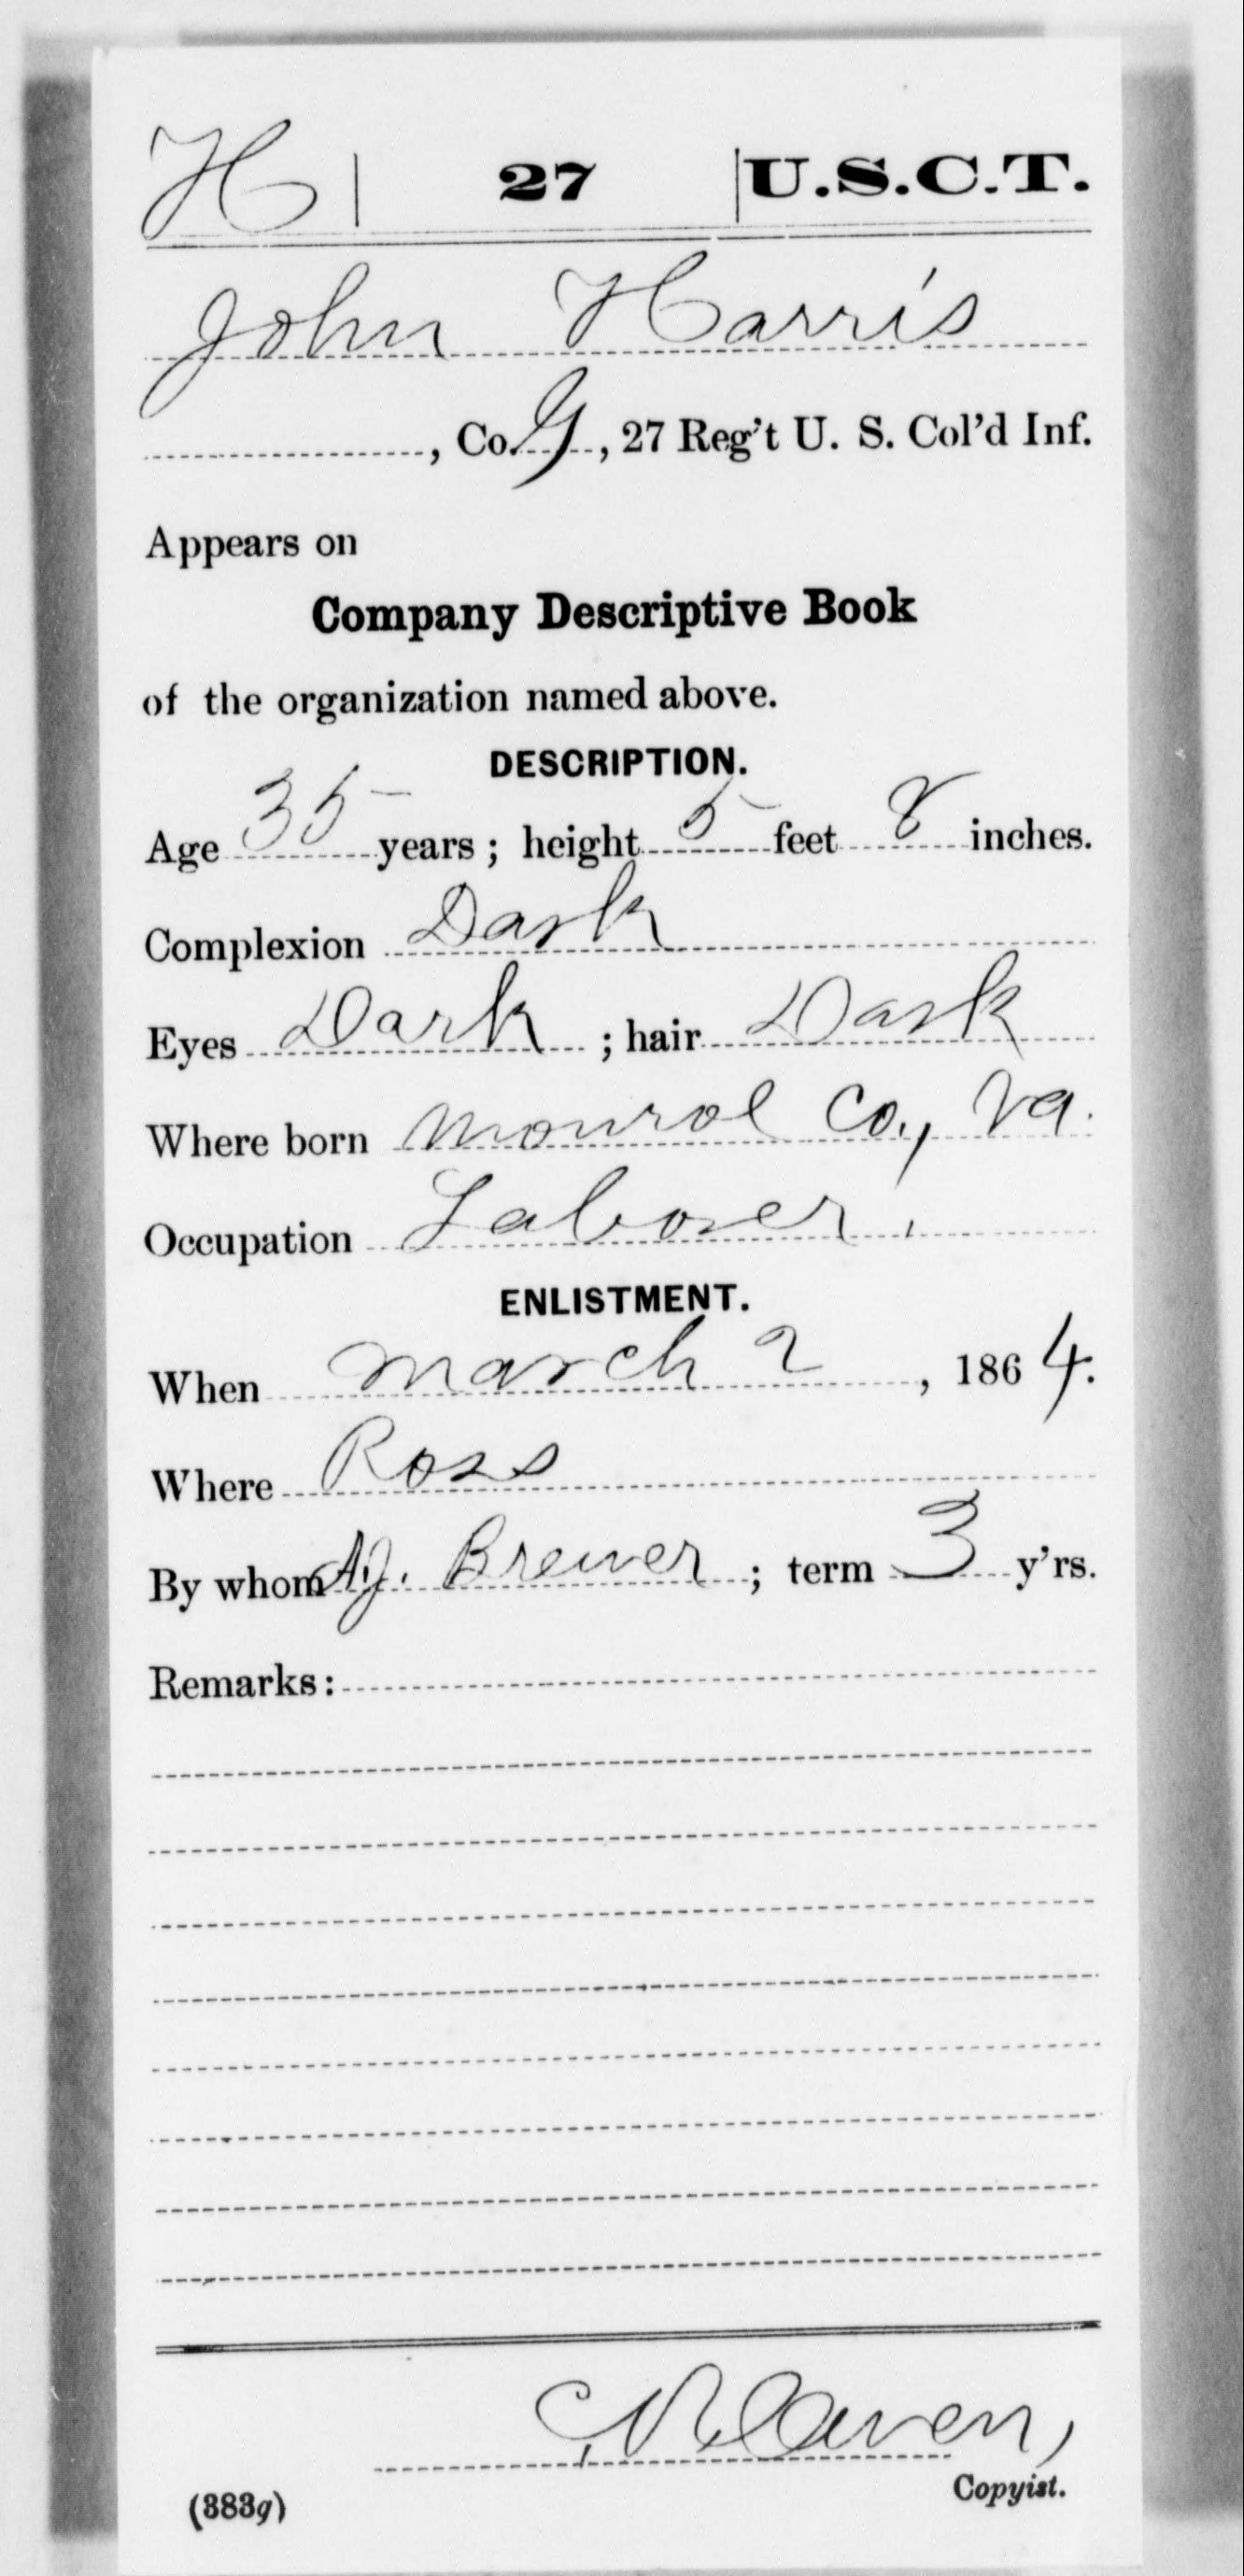 H | 27 | U.S.C.T.
John Harris
, Co. G, 27 Reg't U. S. Col'd Inf.
Appears on
Company Descriptive Book
of the organization named above.
DESCRIPTION.
Age 35 years; height 5 feet 8 inches.
Complexion Dark
Eyes Dark; hair Dark
Where born Monroe Co., Va.
Occupation Laborer.
ENLISTMENT.
When March 2, 1864.
Where Ross
By whom A.J. Brewer; term 3 y'rs.
Remarks:
Copyist.
(383g)